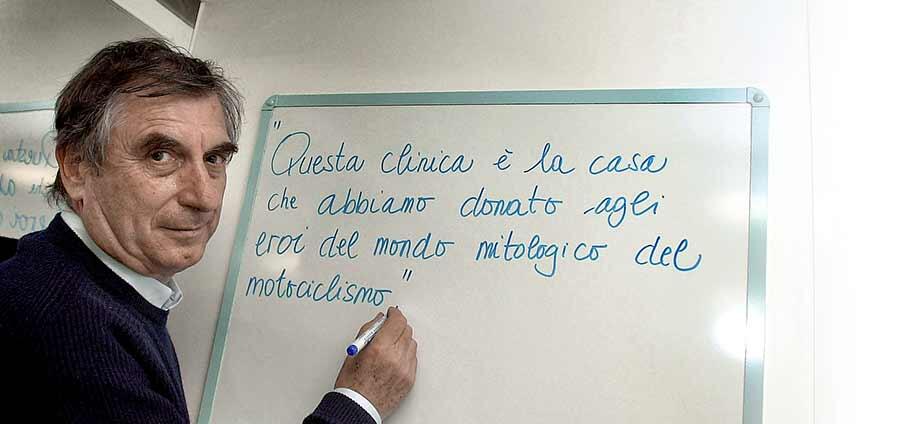 "Questa clinica è la casa
che abbiamo donato agli
eroi del mondo mitologico del
motociclismo"
Questa